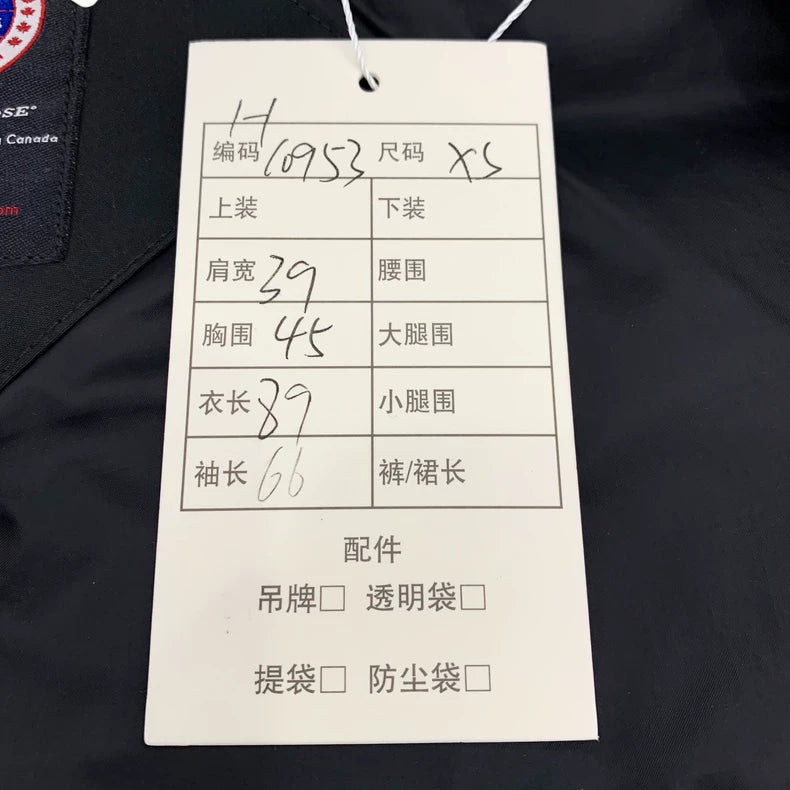 SE®
Canada
om
H
编码 10953 尺码 XS
上装 下装
肩宽 39 腰围
胸围 45 大腿围
衣长 89 小腿围
袖长 66 裤/裙长
配件
吊牌□ 透明袋□
提袋□ 防尘袋□